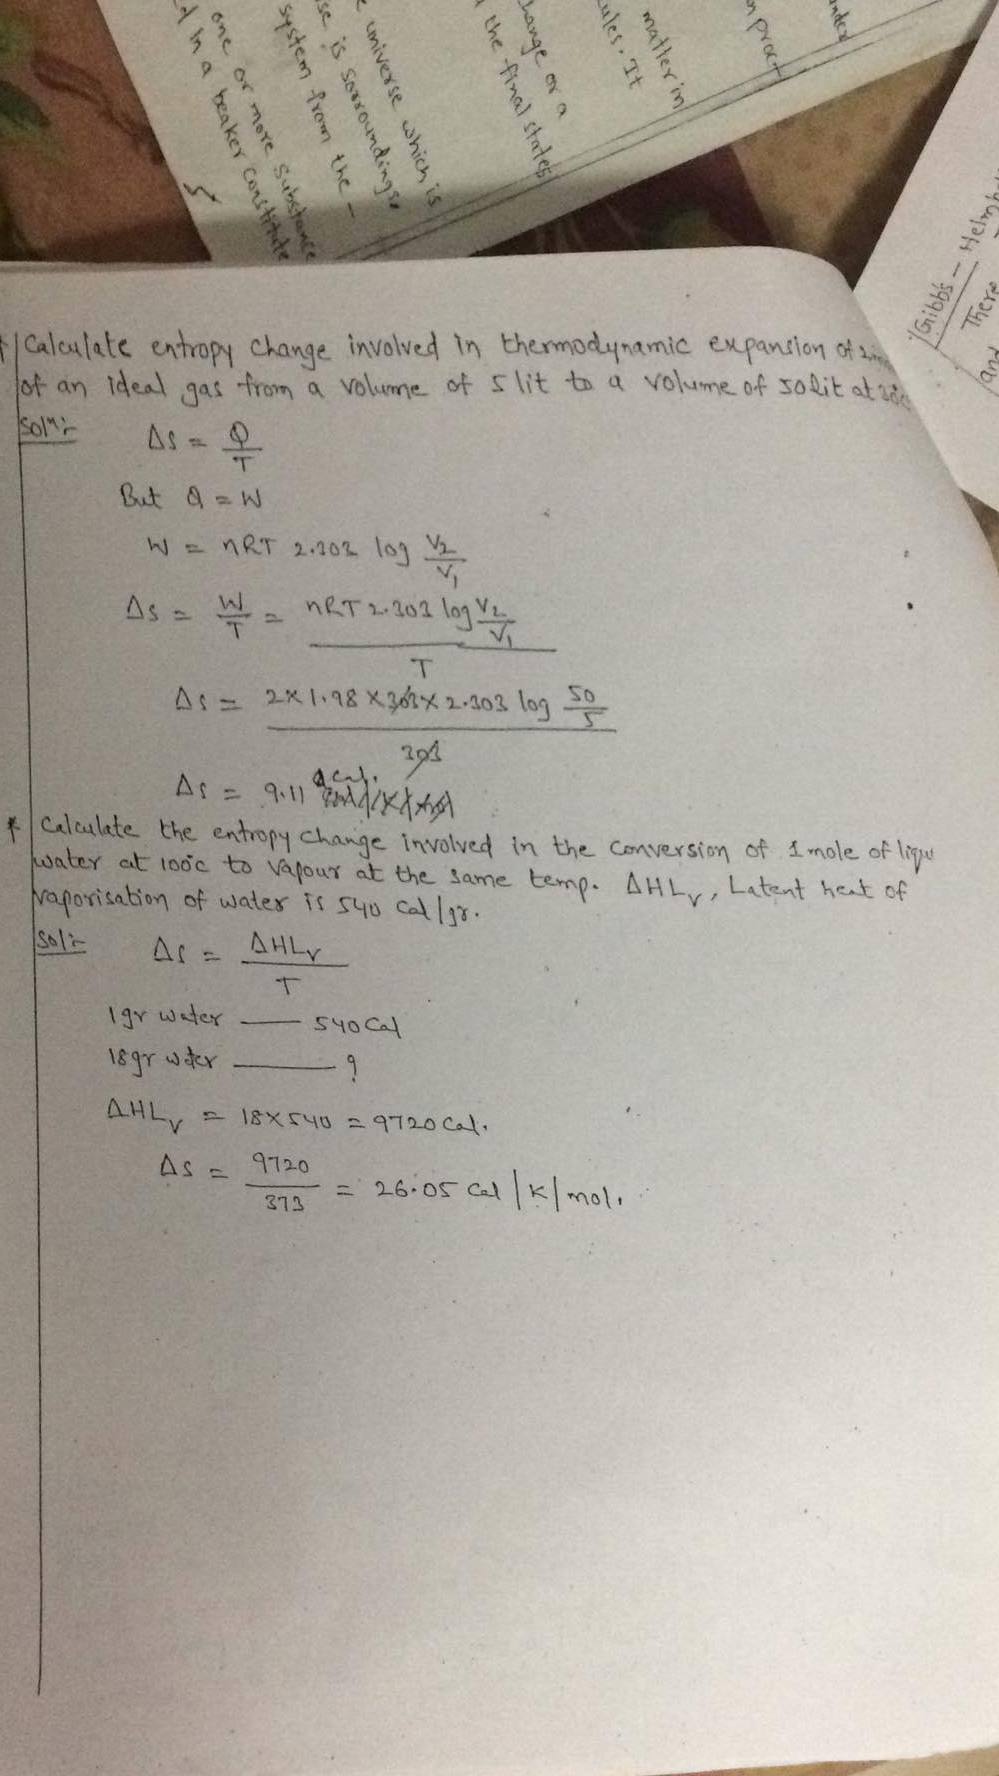 matter in
ules. It
change or a
the final states
e universe which is
se is sorroundings.
system from the -
one or more substance
d in a beaker constitute
Gibb's - Helmh
There
and
* Calculate entropy change involved in thermodynamic expansion of
of an ideal gas from a volume of 5 lit to a volume of 50lit at
Solⁿ:-
ΔS = Q/T
But Q = W
W = nRT 2.303 log V₂/V₁
ΔS = W/T = nRT 2.303 log V₂/V₁ / T
ΔS = 2x1.98 x 303 x 2.303 log 50/5 / 303
ΔS = 9.11 cal.
* Calculate the entropy change involved in the conversion of 1 mole of liqu
water at 100°c to vapour at the same temp. ΔHLᵥ, Latent heat of
vaporisation of water is 540 cal/gr.
Sol:-
ΔS = ΔHLᵥ/T
1gr water — 540 Cal
18gr water — ?
ΔHLᵥ = 18x540 = 9720 Cal.
ΔS = 9720/373 = 26.05 cal/K/mol.